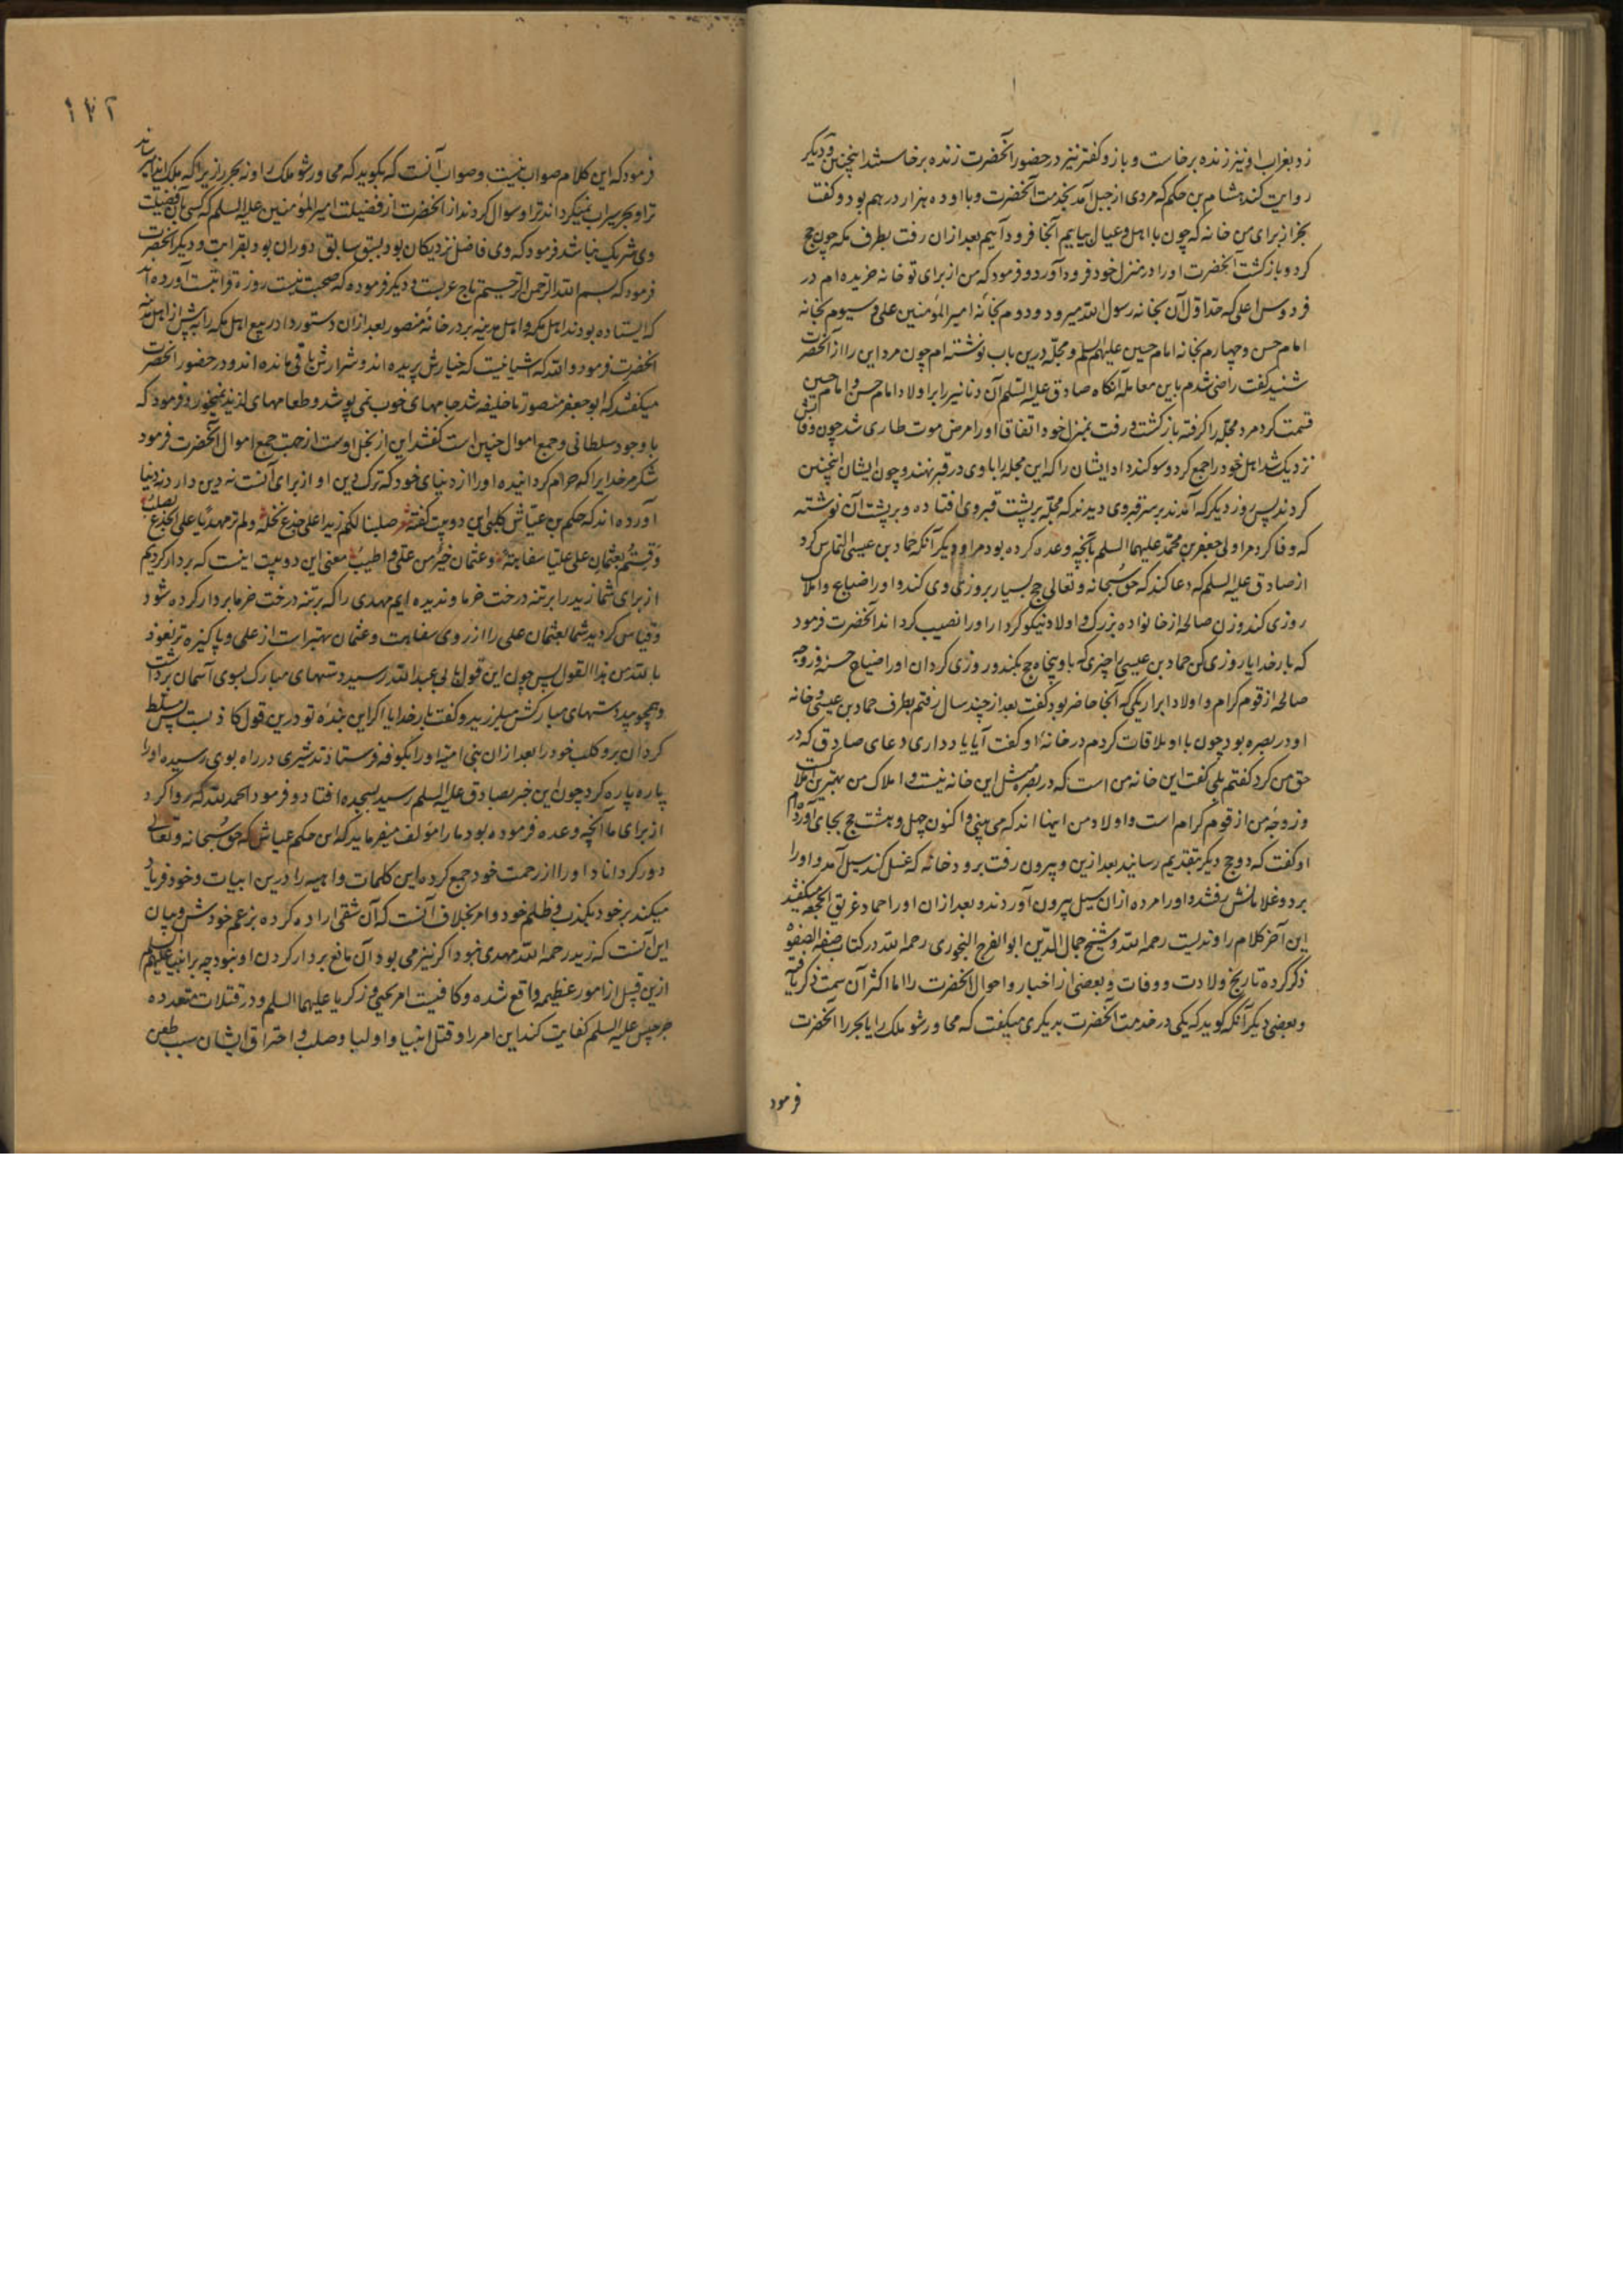 زد بغراب او نیز زنده برخاست و باز و کفتر نیز در حضور آنحضرت زنده برخاستند اینچنین و دیگر
روایت کند هشام بن حکم که مردی از جبل آمد بخدمت آنحضرت و با او ده هزار درهم بود و گفت
بخر از برای من خانه که چون با اهل و عیال بیایم آنجا فرود آییم بعد از ان رفت بطرف مکه چون حج
کرد و بازگشت آنحضرت او را در منزل خود فرود آورد و فرمود که من از برای تو خانه خریده ام در
فردوس اعلی که حد اول آن بخانه رسول الله میرود و دوم بخانه امیر المؤمنین علی و سیوم بخانه
امام حسن و چهارم بخانه امام حسین علیهم السلم و مجله درین باب نوشته ام چون مرد این را از آنحضرت
شنید گفت راضی شدم باین معامله آنگاه صادق علیه السلم آن دنانیر را بر اولاد امام حسن و امام حسین
قسمت کرد مرد مجله را گرفته بازگشت و رفت بمنزل خود اتفاقا او را مرض موت طاری شد چون وفاتش
نزدیک شد اهل خود را جمع کرد و سوگند داد ایشان را که این مجله را با وی در قبر نهند و چون ایشان اینچنین
کردند پس روز دیگر که آمدند بر سر قبر وی دیدند که مجله بر پشت قبر وی افتاده و بر پشت آن نوشته
که وفا کرد مرا ولی جعفر بن محمد علیهما السلم بآنچه وعده کرده بود مرا و دیگر آنکه حماد بن عیسی التماس کرد
از صادق علیه السلم که دعا کند که حق سبحانه و تعالی حج بسیار بروزی وی کند و او را ضیاع و املاک
روزی کند و زن صالحه از خانواده بزرگ و اولاد نیکو کردار او را نصیب گرداند آنحضرت فرمود
که بار خدایا روزی کن حماد بن عیسی را چیزی که باو پنجاه حج بکند و روزی گردان او را ضیاع حسنه و زوجه
صالحه از قوم کرام و اولاد ابرار یکی که آنجا حاضر بود گفت بعد از چند سال رفتم بطرف حماد بن عیسی و خانه
او در بصره بود چون با او ملاقات کردم در خانه او گفت آیا یاد داری دعای صادق که در
حق من کرد گفتم بلی گفت این خانه من است که در بصره مثل این خانه نیست و املاک من بهترین املاکست
و زوجه من از قوم کرام است و اولاد من اینها اند که می بینی و اکنون چهل و هشت حج بجای آورده ام
او گفت که دو حج دیگر بتقدیم رسانید بعد ازین و بیرون رفت برودخانه که غسل کند سیل آمد و او را
برد و غلامانش رفتند و او را مرده از ان سیل بیرون آوردند و بعد از ان او را حماد غریق الجحفه میگفتند
این آخر کلام راوندیست رحمه الله و شیخ جمال الدین ابو الفرج الجوزی رحمه الله در کتاب صفة الصفوة
ذکر کرده تاریخ ولادت و وفات و بعضی از اخبار و احوال آنحضرت را اما اکثر آن سمت ذکر یافته
و بعضی دیگر آنکه گوید که یکی در خدمت آنحضرت بدیگری میگفت که مجاور شو ملک را یا بحر را آنحضرت
فرمود
١٧٢
فرمود که این کلام صواب نیست و صواب آنست که بگوید که مجاور شو ملک را و نه بحر را زیرا که ملک ایذا میرساند
ترا و بحر سیراب نمیگرداند ترا و سوال کردند از آنحضرت از فضیلت امیر المؤمنین علیه السلم که کسی بآن فضیلت
وی شریک نباشد فرمود که وی فاضل نزدیکان بود بسبق سابق دوران بود بقرابت و دیگر آنحضرت
فرمود که بسم الله الرحمن الرحیم تاج عربست و دیگر فرموده که صحبت بیست روزه قرابتست آورده اند
که ایستاده بودند اهل مکه و اهل مدینه بر در خانه منصور بعد از ان دستور داد ربیع اهل مکه را پیش از اهل مدینه
آنحضرت فرمود والله که آشیانیست که خیارش پریده اند و شرارش باقی مانده اند و در حضور آنحضرت
میگفتند که ابو جعفر منصور تا خلیفه شد جامهای خوب نمی پوشد و طعامهای لذیذ نمیخورد و فرمود که
با وجود سلطانی و جمع اموال چنین است گفتند این از بخل اوست از جهت جمع اموال آنحضرت فرمود
شکر مر خدایرا که حرام گردانیده او را از دنیای خود که ترک دین او از برای آنست نه دین دارد نه دنیا
آورده اند که حکم بن عیاش کلبی این دو بیت گفته شعر صلبنا لکم زیدا علی جذع نخلة ولم نر مهدیا علی الجذع یصلب
وقستم بعثمان علی علیا سفاهة وعثمان خیر من علی واطیب معنی این دو بیت اینست که بر دار کردیم
از برای شما زید را بر تنه درخت خرما و ندیده ایم مهدی را که بر تنه درخت خرما بر دار کرده شود
و قیاس کردید شما بعثمان علی را از روی سفاهت و عثمان بهتر است از علی و پاکیزه تر نعوذ
بالله من هذا القول پس چون این قول بابی عبد الله رسید دستهای مبارک بسوی آسمان برداشت
و همچو بید دستهای مبارکش میلرزید و گفت بار خدایا اگر این بنده تو درین قول کاذبست پس مسلط
گردان برو کلب خود را بعد از ان بنی امیه او را بکوفه فرستادند شیری در راه بوی رسیده او را
پاره پاره کرد چون این خبر بصادق علیه السلم رسید بسجده افتاد و فرمود الحمد لله که روا کرد
از برای ما آنچه وعده فرموده بود ما را مؤلف میفرماید که این حکم عیاش که حق سبحانه و تعالی
دور گرداناد او را از رحمت خود جمع کرده این کلمات واهیه را درین ابیات و خود فریاد
میکند بر خود بکذب و ظلم خود و امر بخلاف آنست که آن شقی اراده کرده بزعم خودش و بیان
این آنست که زید رحمه الله مهدی نبود و اگر نیز می بود آن مانع بر دار کردن او نبود چه بر انبیا علیهم السلم
ازین قبیل از امور عظیمه واقع شده و کافیست امر یحیی و زکریا علیهما السلم و در قتلات متعدده
جرجیس علیه السلم کفایت کند این امر را و قتل انبیا و اولیا و صلب و احتراق ایشان سبب طعن